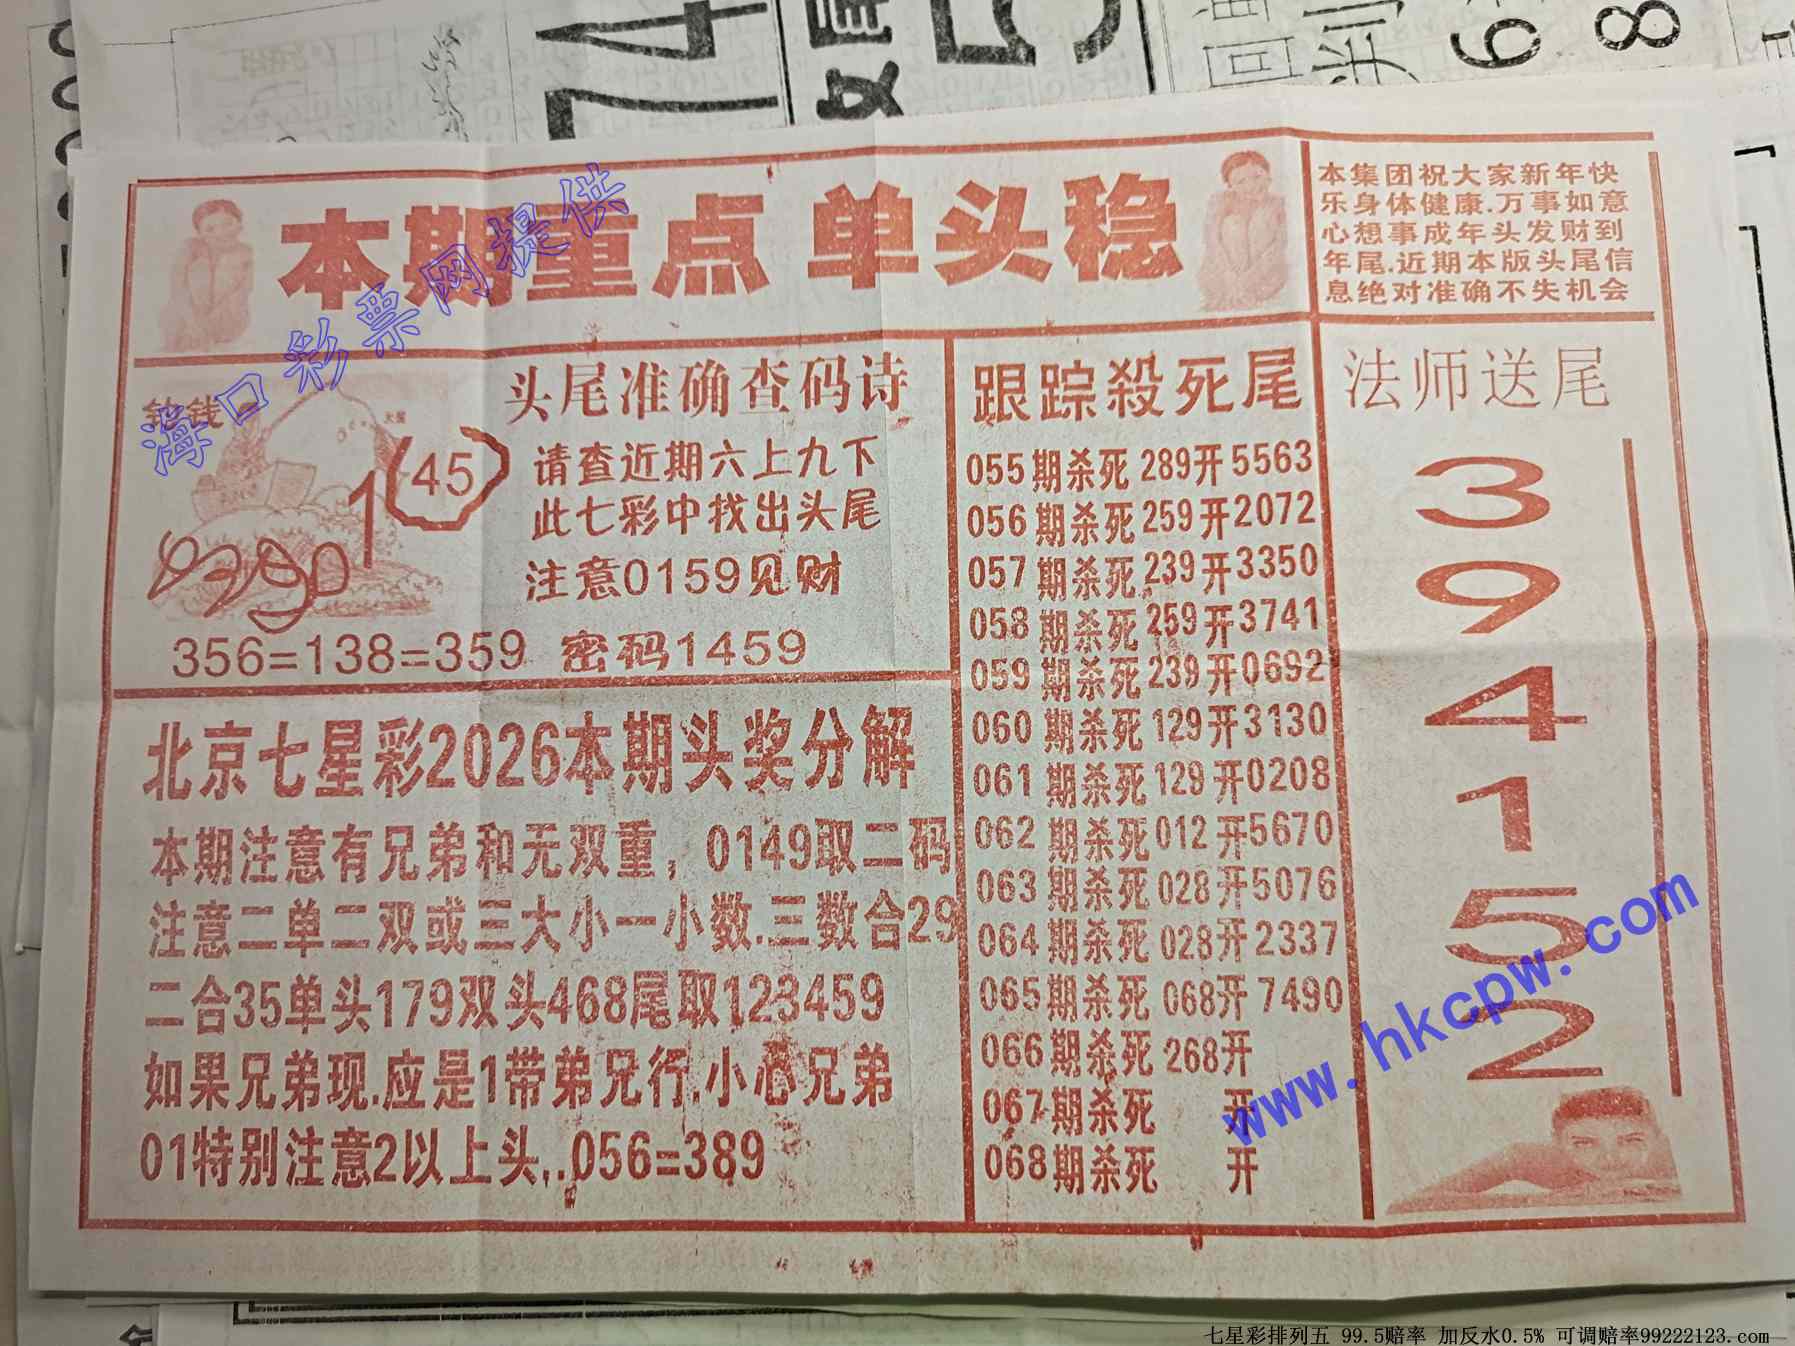 本期重点 单头稳
本集团祝大家新年快
乐身体健康.万事如意
心想事成年头发财到
年尾.近期本版头尾信
息绝对准确不失机会
海口彩票网提供
头尾准确查码诗
请查近期六上九下
此七彩中找出头尾
注意0159见财
1
45
356=138=359 密码1459
北京七星彩2026本期头奖分解
本期注意有兄弟和无双重，0149取二码
注意二单二双或三大小一小数.三数合29
二合35单头179双头468尾取123459
如果兄弟现.应是1带弟兄行.小心兄弟
01特别注意2以上头..056=389
跟踪殺死尾
055期杀死289开5563
056期杀死259开2072
057期杀死239开3350
058期杀死259开3741
059期杀死239开0692
060期杀死129开3130
061期杀死129开0208
062期杀死012开5670
063期杀死028开5076
064期杀死028开2337
065期杀死068开7490
066期杀死268开
067期杀死 开
068期杀死 开
法师送尾
3
9
4
1
5
2
www.hkcpw.com
七星彩排列五 99.5赔率 加反水0.5% 可调赔率99222123.com